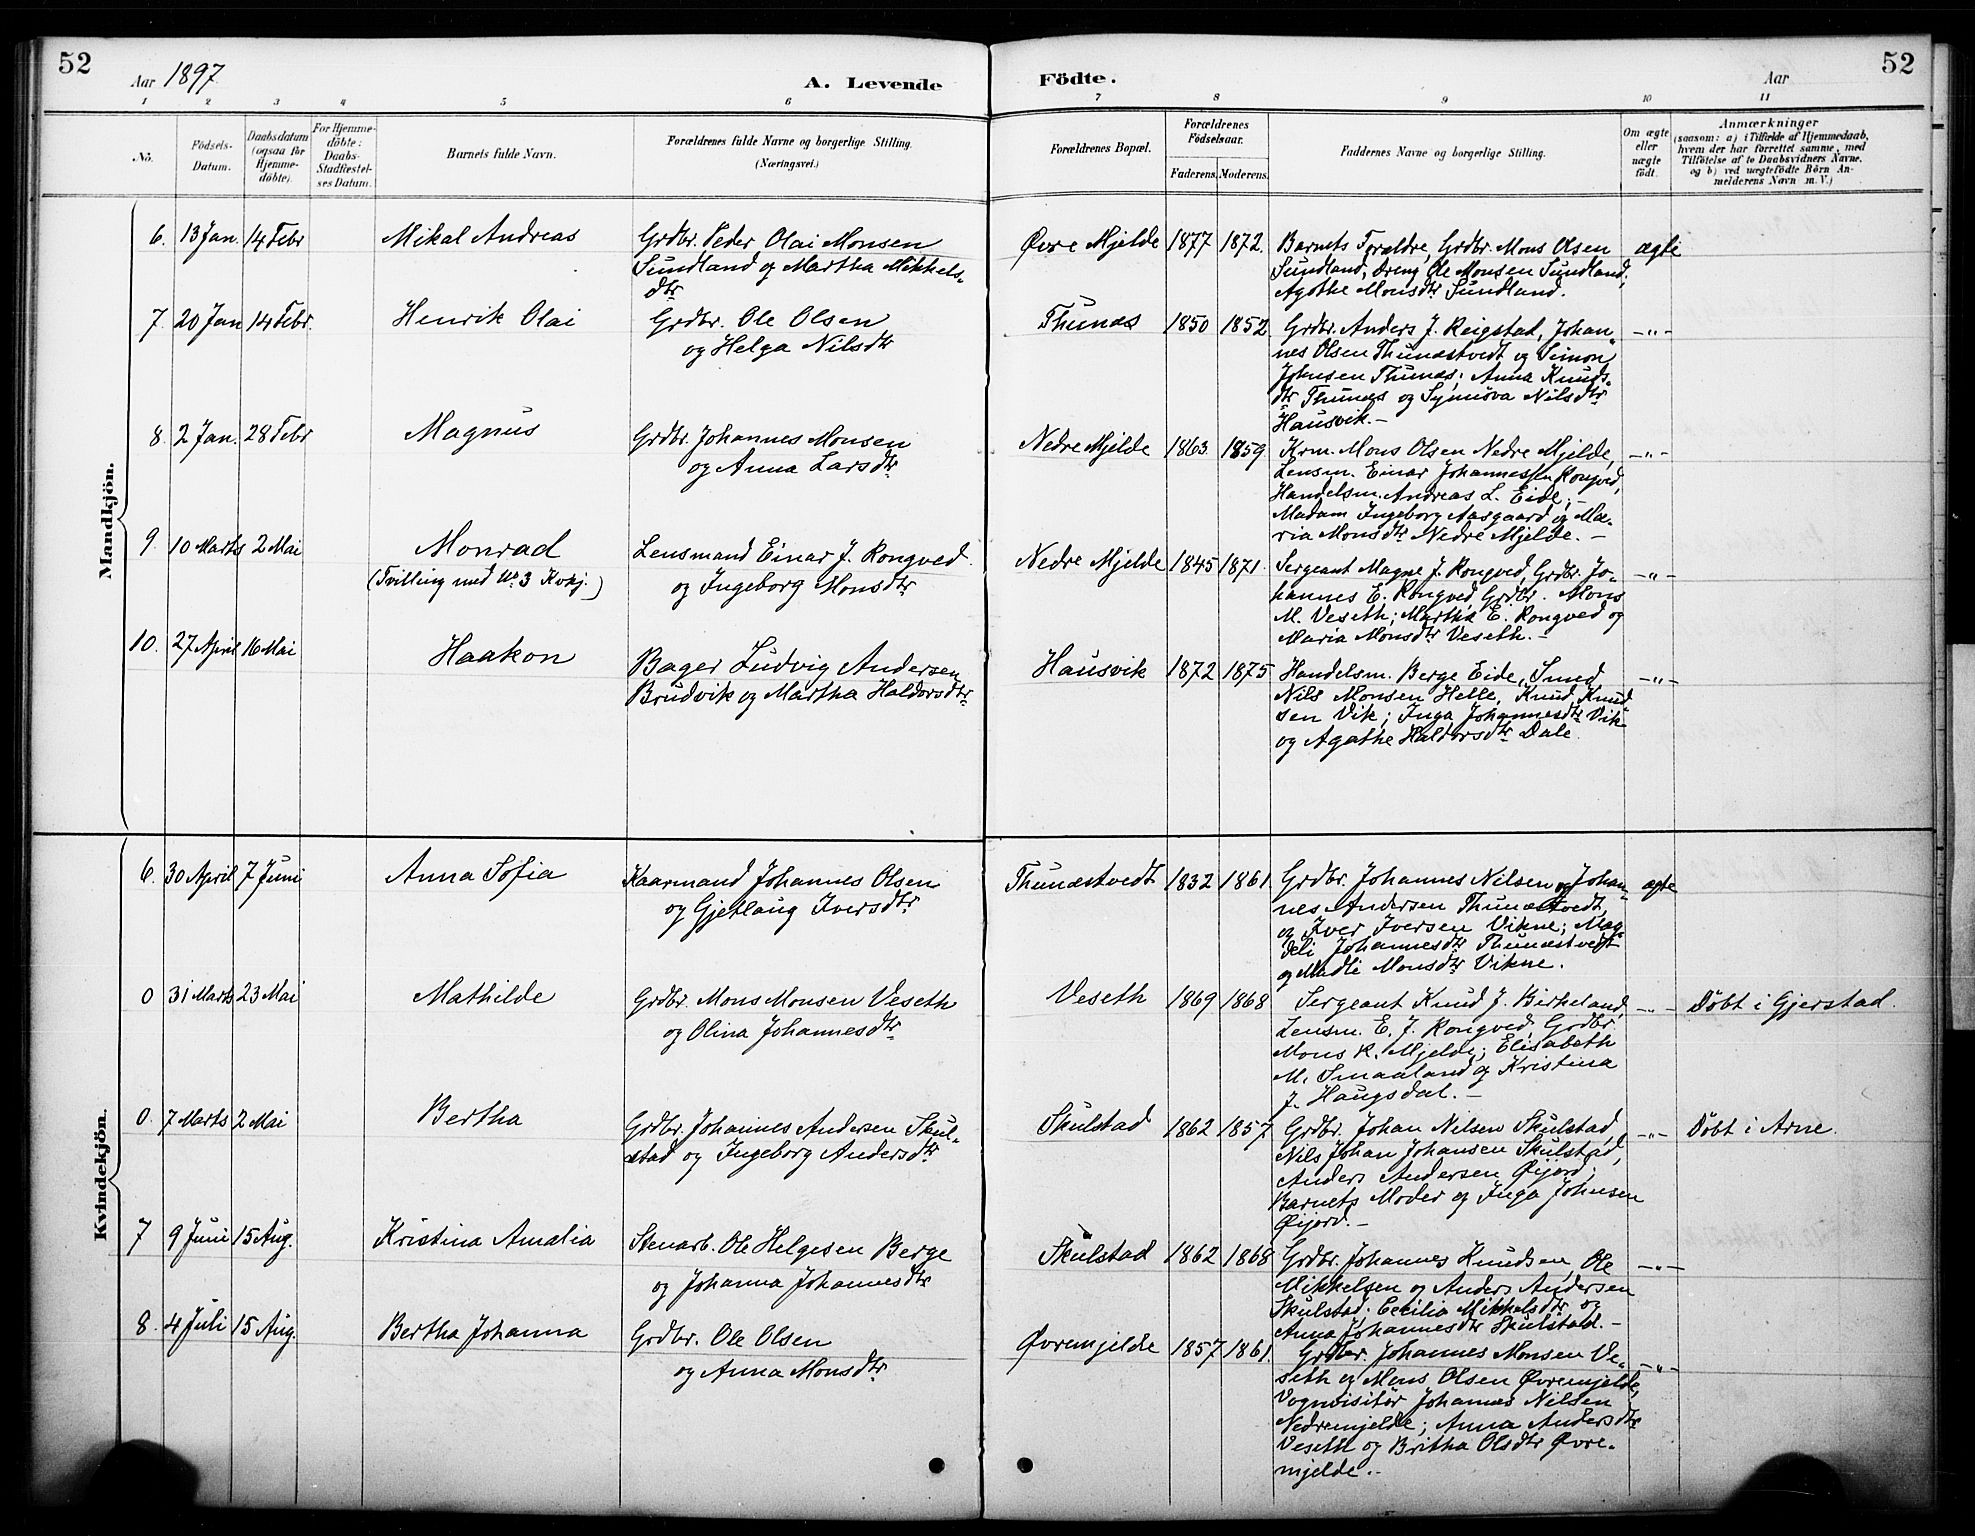 52
Aar 1897
A. Levende
Födte.
Aar
52
1 2 3 4 5 6 7 8 9 10 11
No.
Födsels-Datum.
Daabsdatum (ogsaa for Hjemme-döbte).
For Hjemme-döbte: Daabs-Stadfæstel-ses Datum.
Barnets fulde Navn.
Forældrenes fulde Navne og borgerlige Stilling.
(Næringsvei.)
Forældrenes Bopæl.
Forældrenes Födselsaar.
Faderens. Moderens.
Faddernes Navne og borgerlige Stilling.
Om ægte eller uægte födt.
Anmærkninger
(saasom: a) i Tilfælde af Hjemmedaab,
hvem der har forrettet samme, med
Tilföielse af to Daabsvidners Navne,
og b) ved uægtefödte Börn An-
melderens Navn m. V.)
Mandkjön.
6. 13 Jan. 14 Febr Mikal Andreas
Grdbr. Peder Olai Monsen
Sundland og Martha Mikkels-
dtr
Øvre Mjelde 1877 1872.
Barnets Forældre, Grdbr. Mons Olsen
Sundland, dreng Ole Monsen Sundland,
Agathe Monsdtr Sundland.
ægte
7. 20 Jan 14 Febr. Henrik Olai
Grdbr. Ole Olsen
og Helga Nilsdtr
Thunæs 1850 1852
Grdbr. Anders J. Reigstad, Johan-
nes Olsen Thunæstvedt og Simon
Johnsen Thunæs; Anna Knuds-
dtr Thunæs og Synnøva Nilsdtr
Hausvik.-
-"-
8. 2 Jan. 28 Febr Magnus
Grdbr. Johannes Monsen
og Anna Larsdtr
Nedre Mjelde 1863 1859.
Krm. Mons Olsen Nedre Mjelde,
Lensm. Einar Johannessen Rongved,
Handelsm. Andreas L. Eide;-
Madam Ingeborg Aasgaard og Ma-
ria Monsdtr Nedre Mjelde.-
-"-
9. 10 Marts 2 Mai Monrad
(Tvilling med No 3 Kvkj.)
Lensmand Einar J. Rongved
og Ingeborg Monsdtr
Nedre Mjelde 1845 1871.
Sergeant Magne J. Rongved, Grdbr. Jo-
hannes E. Rongved, Grdbr. Mons
M. Veseth; Martha E. Rongved og
Maria Monsdtr Veseth.-
-"-
10. 27 April 16 Mai Haakon
Bager Ludvig Andersen
Brudvik og Martha Haldorsdtr
Hausvik 1872 1875
Handelsm. Berge Eide, Smed
Nils Monsen Helle, Knud Knud
sen Vik; Inga Johannesdtr Vik
og Agathe Haldorsdtr Dale.
-"-
Kvindekjön.
6. 30 April 7 Juni Anna Sofia
Kaarmand Johannes Olsen
og Gjetlaug Iversdtr
Thunæstvedt 1832 1861
Grdbr. Johannes Nilsen og Johan-
nes Andersen Thunæstvedt,
og Iver Iversen Vikne; Mag-
deli Johannesdtr Thunæstvedt
og Madli Monsdtr Vikne.
ægte
0 31 Marts 23 Mai Mathilde
Grdbr. Mons Monsen Veseth
og Olina Johannesdtr
Veseth 1869 1868
Sergeant Knud J. Birkeland,
Lensm. E. J. Rongved, Grdbr.
Mons K. Mjelde; Elisabeth
M. Smaaland og Kristina
J. Haugsdal.-
-"- Döbt i Gjerstad.
0. 7 Marts 2 Mai Bertha
Grdbr. Johannes Andersen Skul-
stad og Ingeborg Andersdtr
Skulstad 1862 1857
Grdbr. Johan Nilsen Skulstad,
Nils Johan Johansen Skulstad,
Anders Andersen Øijord;
Barnets Moder og Inga Johnsen
Øijord.-
-"- Döbt i Arne.
7 9 Juni 15 Aug. Kristina Amalia
Stenarb. Ole Helgesen Berge
og Johanna Johannesdtr
Skulstad 1862 1868
Grdbr. Johannes Knudsen, Ole
Mikkelsen og Anders Andersen
Skulstad; Cecilia Mikkelsdtr og
Anna Johannesdtr Skulstad.-
-"-
8. 4 Juli 15 Aug. Bertha Johanna
Grdbr. Ole Olsen
og Anna Monsdtr
Øvremjelde 1857 1861.
Grdbr. Johannes Monsen Ve-
seth og Mons Olsen Øvremjelde,
Vognvisitör Johannes Nilsen
Nedremjelde; Anna Andersdtr
Veseth og Britha Olsdtr Øvre-
mjelde.-
-"-